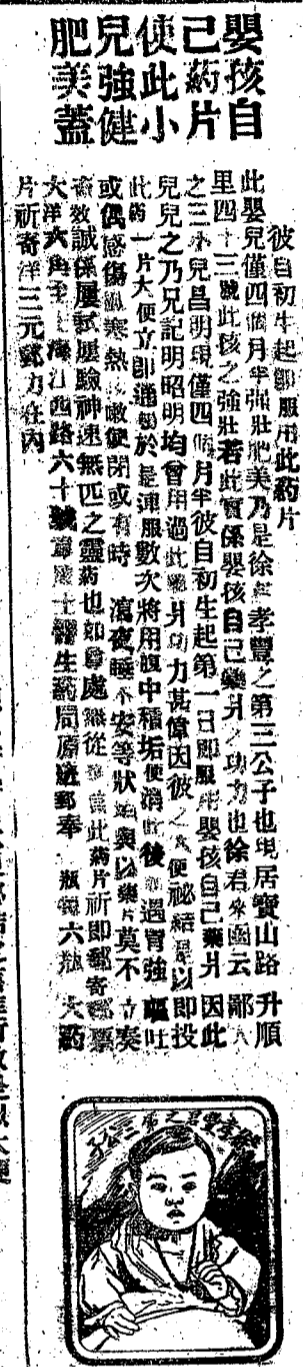 嬰孩自
己葯片
使此小
兒強健
肥美蓋
彼自初生起即服用此葯片
此嬰兒僅四個月半強壯肥美乃是徐君孝豐之第三公子也現居寶山路升順
里四十三號此孩之強壯若此實係嬰孩自己藥片之功力也徐君來函云鄙人
之三小兒昌明現僅四個月半彼自初生起第一日即服用嬰孩自己藥片因此
兒兒之乃兄記明昭明均曾用過此藥片功力甚偉因彼之大便祕結是以即投
此葯一片大便立即通暢於是連服數次將用腹中積垢使消後過胃強嘔吐
或偶感傷風寒熱咳嗽便閉或有時瀉夜睡不安等狀與以藥片莫不立奏
奇效誠係屢試屢驗神速無匹之靈葯也如尊處無從此葯片祈即郵寄郵票
大洋六角至上海江西路六十號韋廉士醫生葯局原班郵奉一瓶每六瓶大葯
片祈寄洋三元郵力在內
徐孝豐君之第三公子